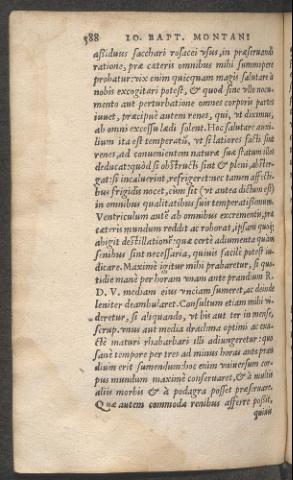 588 IO. BAPT. MONTANI
assiduus sacchari rosacei vsus, in præseruandi
ratione, præ cæteris omnibus mihi summopere
probatur: vix enim quicquam magis salutare à
nobis excogitari potest, & quod sine vllo nocu-
mento aut perturbatione omnes corporis partes
iuuet, præcipuè autem renes, qui, vt diximus,
ab omni excessu lædi solent. Hoc salutare auxi-
lium ita est temperatũ, vt si latiores facti sint
renes, ad conuenientem naturæ suæ statum illos
deducat: quòd si obstructi sint & pleni, abster-
gat: si incaluerint, refrigeret: nec tamen affecti-
bus frigidis nocet, cùm sit (vt antea dictum est)
in omnibus qualitatibus suis temperatissimum.
Ventriculum autẽ ab omnibus excrementis, præ
cæteris mundum reddit ac roborat, ipsam quoq;
abigit destillationẽ: quæ certè adiumenta quàm
senibus sint necessaria, quiuis facilè potest iu-
dicare. Maximè igitur mihi probaretur, si quo-
tidie manè per horam vnam ante prandium R.
D. V. mediam eius vnciam sumeret, ac deinde
leniter deambularet. Consultum etiam mihi vi-
deretur, si aliquando, vt bis aut ter in mense,
scrup. vnus aut media drachma optimi ac exa-
ctè maturi rhabarbari illi adiungeretur: quo
sanè tempore per tres ad minus horas ante pran
dium erit sumendum: hoc enim vniuersum cor-
pus mundum maximè conseruaret, & à multis
aliis morbis & à podagra posset præseruare.
Quæ autem commoda renibus afferre possit,
quiuis